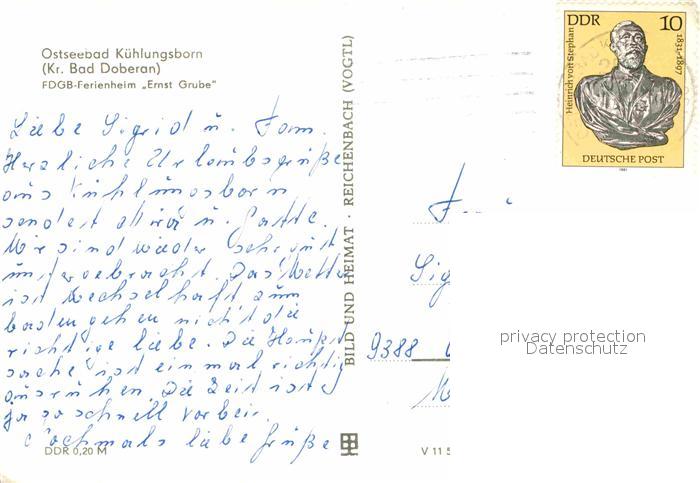 Ostseebad Kühlungsborn
(Kr. Bad Doberan)
FDGB-Ferienheim „Ernst Grube"
Liebe Sigrid u. Fam.
Herzliche Urlaubsgrüße
aus Kühlungsborn
sendet u. Gatte.
Wir sind wieder sehr gut
untergebracht. Das Wetter
ist wechselhaft zum
baden gehen nicht die
richtige liebe. Die Haupt
sache ist einmal richtig
ausruhen. Die Zeit ist
ja so schnell vorbei.
Nochmals liebe Grüße
DDR 0,20 M
BILD UND HEIMAT · REICHENBACH (VOGTL)
V 11 5
DDR 10
Heinrich von Stephan
1831-1897
DEUTSCHE POST
1981
F
Sig
9388
privacy protection
Datenschutz